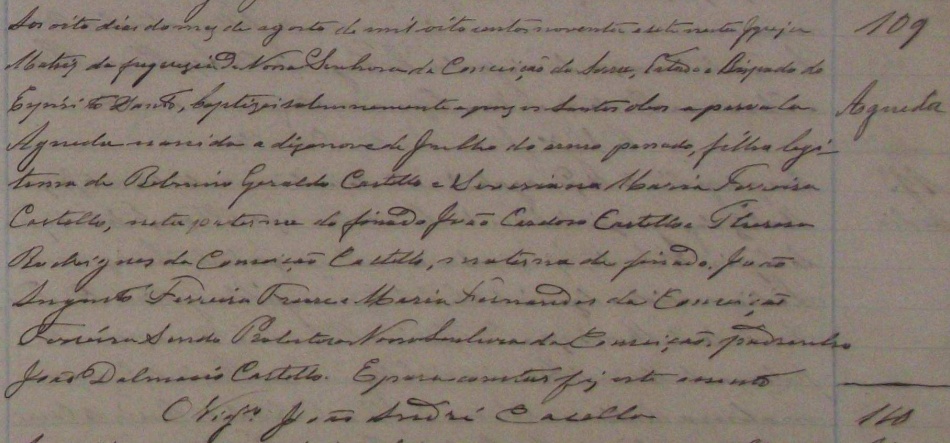 Aos oito dias do mez de agosto de mil oito centos noventa e sete nesta Igreja
Matriz da freguezia de Nossa Senhora da Conceição da Serra, Estado e Bispado do
Espirito Santo, baptizei solemnemente e puz os Santos oleos a parvula
Agueda nascida a dezenove de Julho do anno passado, filha legi-
tima de Belmiro Geraldo Castello e Severiana Maria Ferreira
Castello, neta paterna do finado João Cardoso Castello e Theresa
Rodrigues da Conceição Castello, materna de finado João
Augusto Ferreira e Maria Fernandes da Conceição
Ferreira Sendo Protectora Nossa Senhora da Conceição, padrinho
João Dalmacio Castello. E para constar fiz este assento
O Vigr.º João André Casella
109
Agueda
110